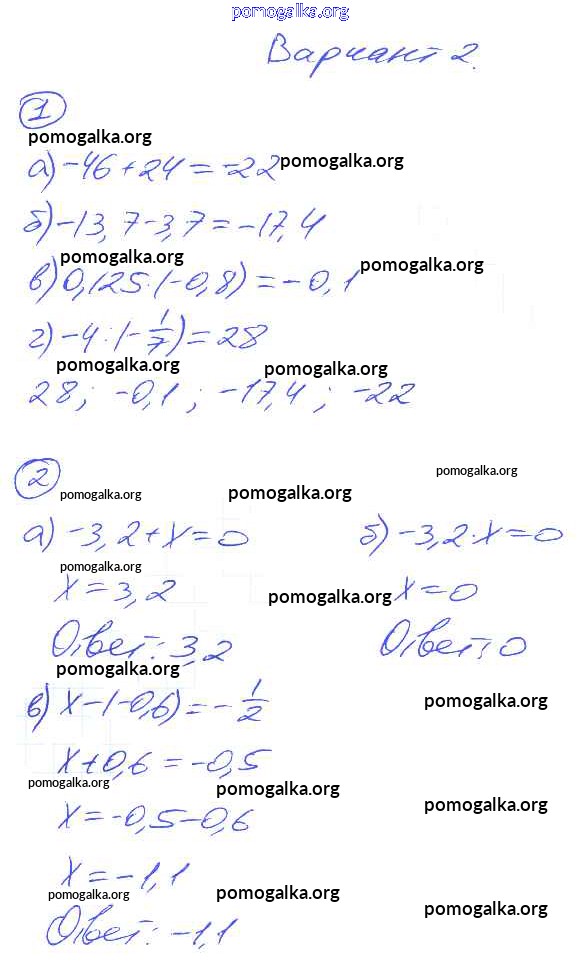 pomogalka.org
Вариант 2.
1
pomogalka.org
а) -46 + 24 = -22 pomogalka.org
б) -13,7 - 3,7 = -17,4
pomogalka.org pomogalka.org
в) 0,125 · (-0,8) = -0,1
г) -4 : (-1/7) = 28
pomogalka.org pomogalka.org
28; -0,1; -17,4; -22
pomogalka.org
2
pomogalka.org pomogalka.org
а) -3,2 + x = 0 б) -3,2 · x = 0
pomogalka.org
x = 3,2 pomogalka.org x = 0
Ответ: 3,2 Ответ: 0
pomogalka.org
в) x - (-0,6) = -1/2 pomogalka.org
x + 0,6 = -0,5
pomogalka.org pomogalka.org pomogalka.org
x = -0,5 - 0,6
x = -1,1
pomogalka.org pomogalka.org pomogalka.org
Ответ: -1,1